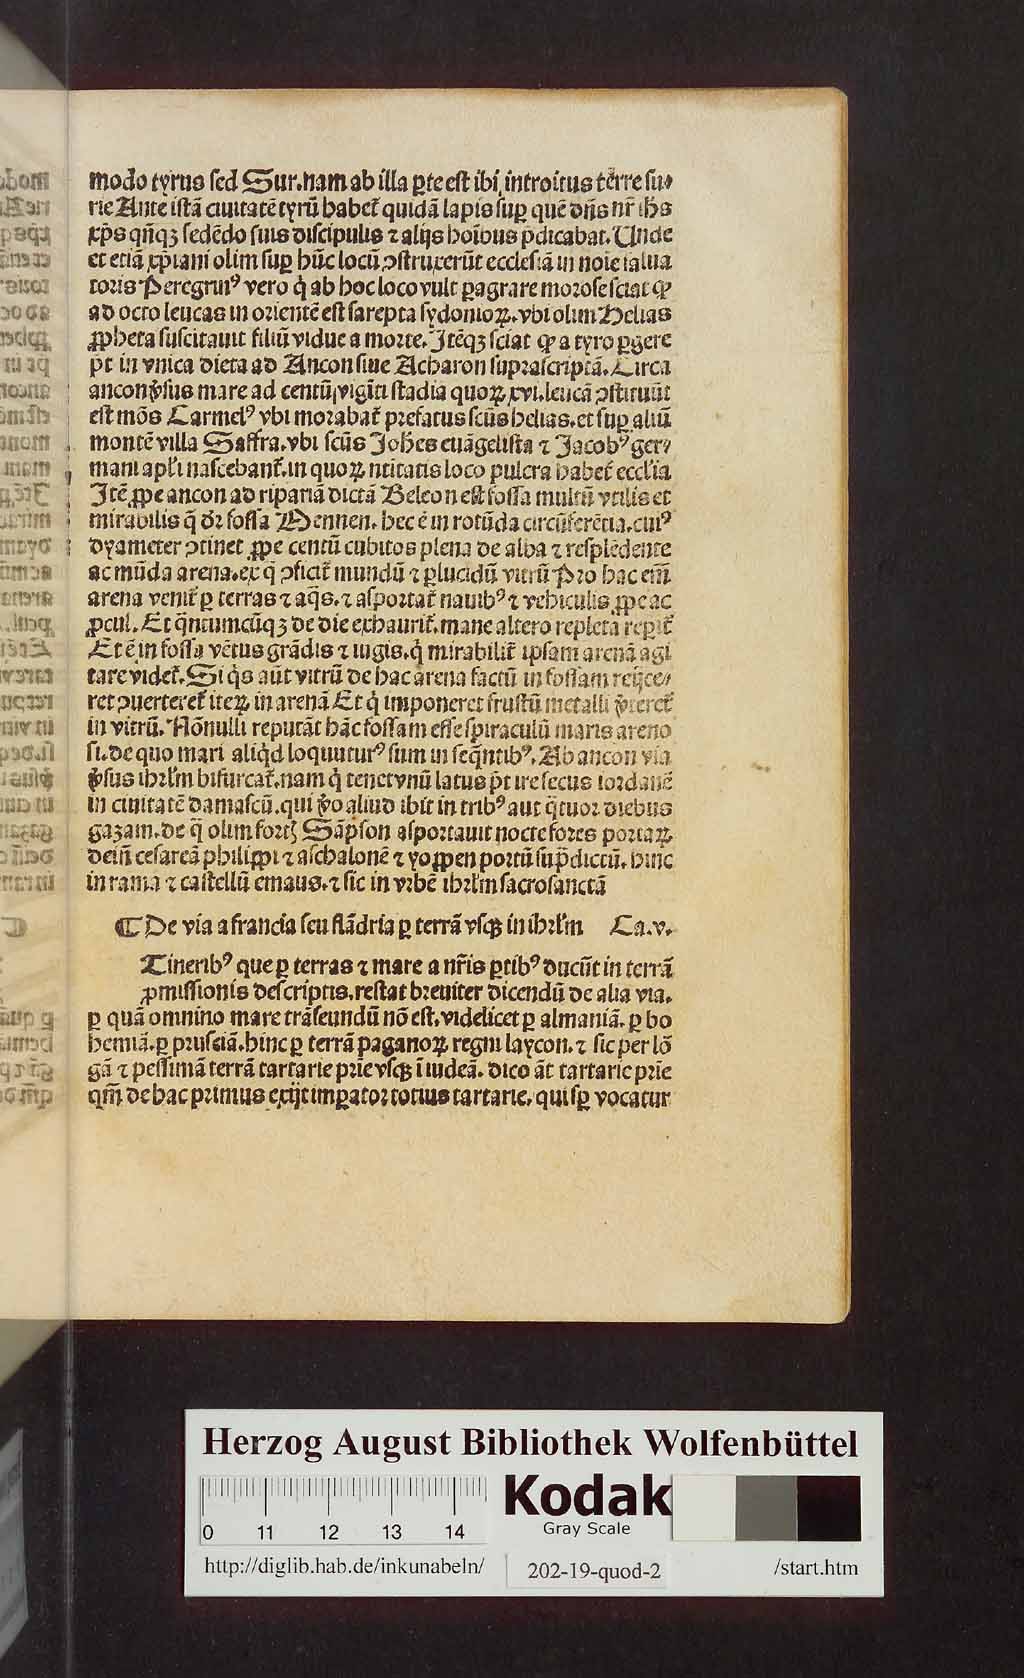 modo tyrus sed Sur. nam ab illa ꝑte est ibi introitus terre su⸗
rie Ante istā ciuitatē tyrū habet᷑ quidā lapis suꝑ quē dñs nr̄ ihs
xp̄s qñqꝫ sedēdo suis discipulis ⁊ alijs hoībus p̄dicabat. Unde
et etiā xp̄iani olim suꝑ hūc locū ꝯstruxerūt ecclesiā in noīe salua
toris Peregrinꝰ vero q̇ ab hoc loco vult ꝑagrare morose sciat ꝙ
ad octo leucas in orientē est sarepta sydonioꝝ. vbi olim Helias
ꝓpheta suscitauit filiū vidue a morte. Itēqꝫ sciat ꝙ a tyro ꝑgere
pt in vnica dieta ad Ancon siue Acharon suprascriptā. Circa
ancon ꝟsus mare ad centū vigīti stadia quoꝝ xvi. leucā ꝯstituūt
est mōs Carmelꝰ vbi morabat᷑ prefatus scūs helias. et suꝑ aliū
montē villa Saffra. vbi scūs Joh̄es euāgelista ⁊ Jacobꝰ ger⸗
mani apl̄i nascebant᷑. in quoꝝ ntitatis loco pulcra habet᷑ ecclīa
Itē ꝓpe ancon ad ripariā dictā Beleon est fossa multū vtilis et
mirabilis q̄ dr̄ fossa Mennen. hec ē in rotūda circūferētia. cuiꝰ
dyameter ꝯtinet ꝓpe centū cubitos plena de alba ⁊ resplēdente
ac mūda arena. ex q̄ ꝯficit᷑ mundū ⁊ ꝑlucidū vitrū Pro hac em̄
arena venit᷑ ꝑ terras ⁊ aq̄s. ⁊ asportat᷑ nauibꝰ ⁊ vehiculis ꝓpe ac
ꝓcul. Et q̄ntumcūqꝫ de die exhaurit᷑. mane altero repleta reꝑit᷑
Et ē in fossa vētus grādis ⁊ iugis. q̇ mirabilit᷑ ipsam arenā agi
tare videt᷑. Si q̇s aūt vitrū de hac arena factū in fossam reijce⸗
ret ꝯuerteret᷑ iteꝝ in arenā Et q̇ imponeret frustū metalli ꝟteret᷑
in vitrū. Nōnulli reputāt hāc fossam esse spiraculū maris areno
si. de quo mari aliq̇d loquuturꝰ sum in seq̄ntibꝰ. Ab ancon via
ꝟsus ihrl̄m bifurcat᷑. nam q̇ tenet vnū latus pt̄ ire secus iordanē
in ciuitatē damascū. qui ꝟo aliud ibit in tribꝰ aut q̄tuor diebus
gazam. de q̄ olim fortꝭ Sāpson asportauit nocte fores portaꝝ.
dein̄ cesareā philippi ⁊ aschalonē ⁊ yoppen portū sup̄dictū. hinc
in rama ⁊ castellū emaus. ⁊ sic in vrbē ihrl̄m sacrosanctā
¶ De via a francia seu flādria ꝑ terrā vsqꝫ in ihrl̄m Ca. v.
Tineribꝰ que ꝑ terras ⁊ mare a nr̄is ꝑtibꝰ ducūt in terrā
ꝓmissionis descriptis. restat breuiter dicendū de alia via.
ꝑ quā omnino mare trāseundū nō est. videlicet ꝑ almaniā. ꝑ bo
hemiā. ꝑ prusciā. hinc ꝑ terrā paganoꝝ regni laycon. ⁊ sic per lō
gā ⁊ pessimā terrā tartarie prīe vsqꝫ ī iudeā. dico āt tartarie prīe
qm̄ de hac primus exijt imꝑator totius tartarie. qui sꝑ vocatur
Herzog August Bibliothek Wolfenbüttel
0 11 12 13 14
Kodak
Gray Scale
http://diglib.hab.de/inkunabeln/ 202-19-quod-2 /start.htm